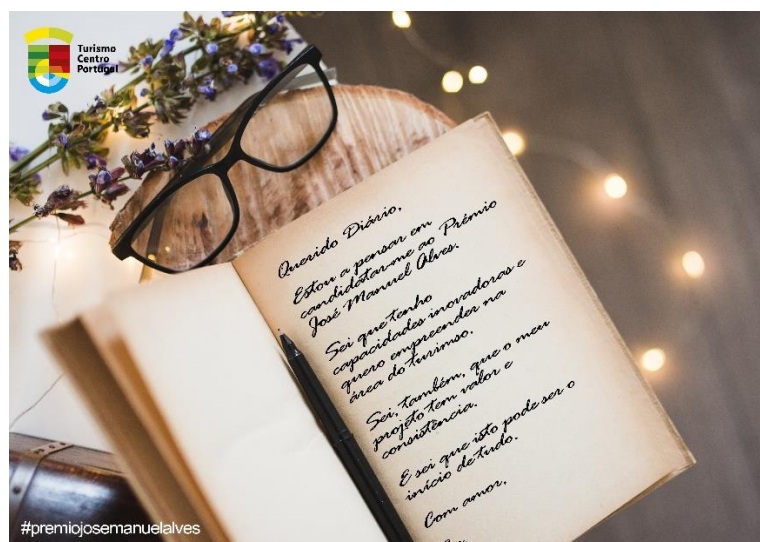 Turismo
Centro
Portugal
Querido Diário,
Estou a pensar em
candidatar-me ao Prémio
José Manuel Alves.
Sei que tenho
capacidades inovadoras e
quero empreender na
área do turimso.
Sei, também, que o meu
projeto tem valor e
consistência.
E sei que isto pode ser o
início de tudo.
Com amor,
#premiojosemanuelalves